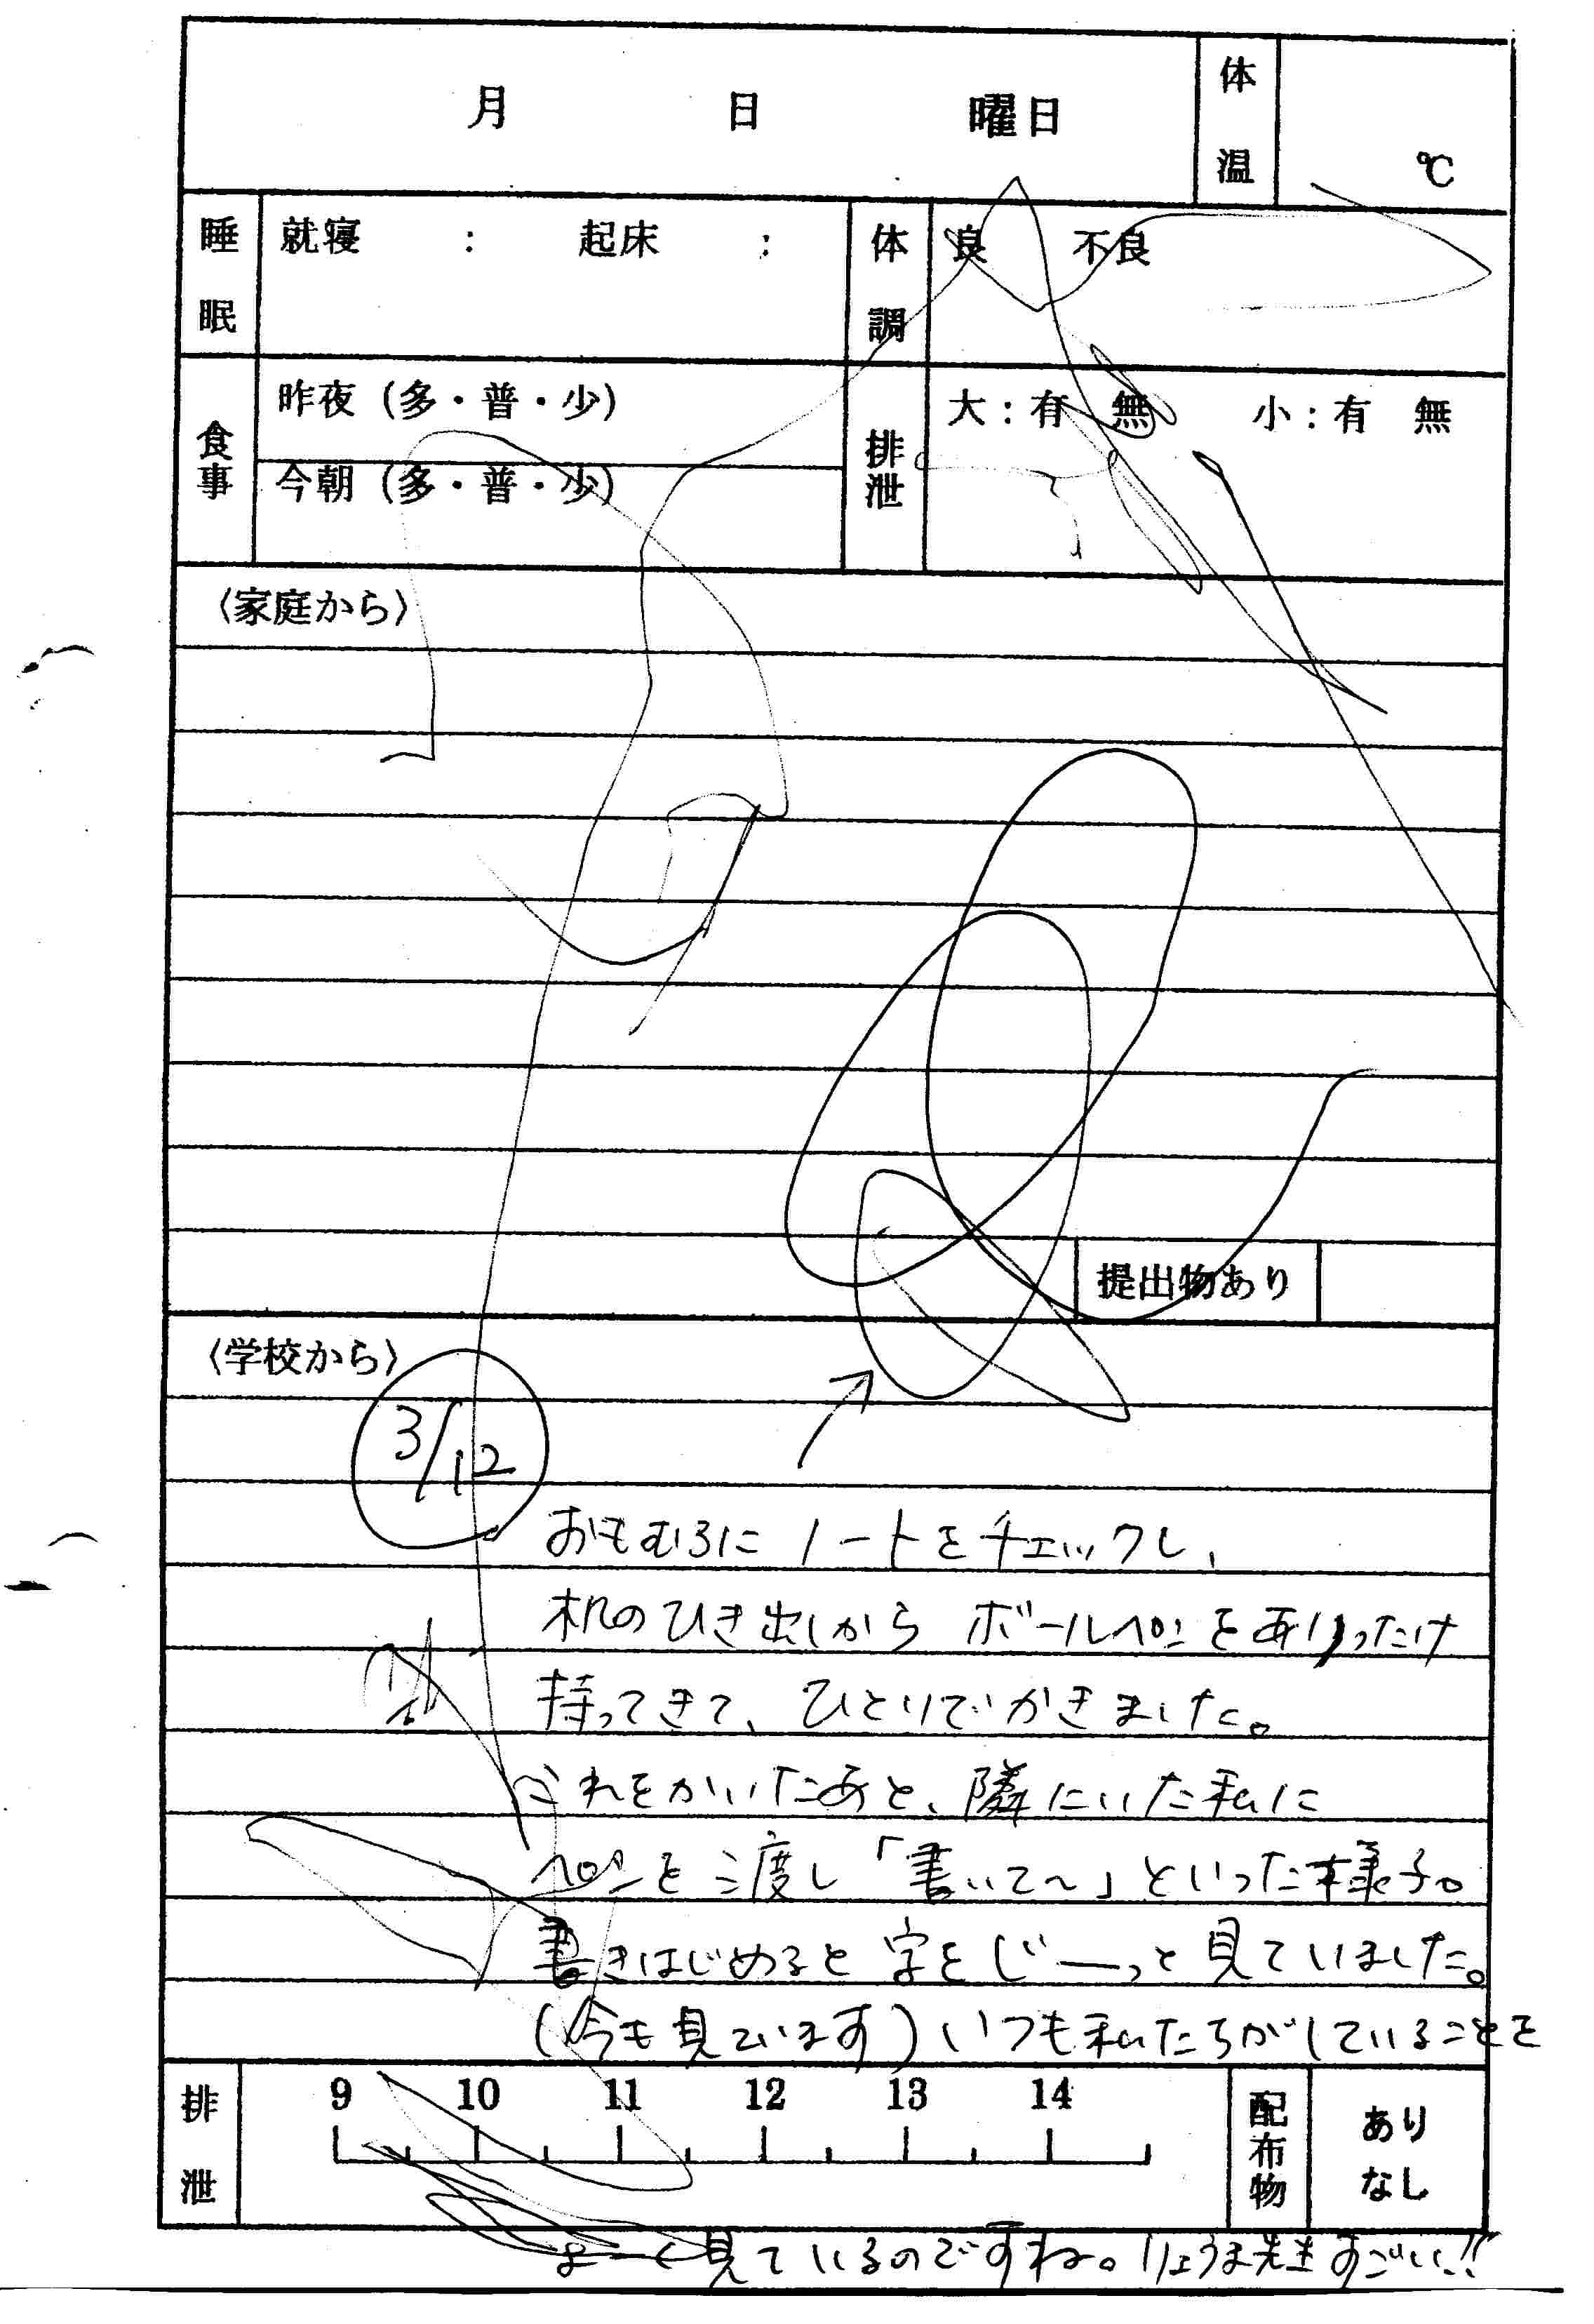 月 日 曜日 体温 ℃
睡眠 就寝 : 起床 : 体調 良 不良
食事 昨夜(多・普・少) 排泄 大:有 無 小:有 無
今朝(多・普・少)
〈家庭から〉
提出物あり
〈学校から〉
3/12
おもむろにノートをチェックし、
机のひき出しからボールペンをありったけ
持ってきて、ひとりでかきました。
これをかいたあと、隣にいた私に
ペンを渡し「書いて〜」といった様子。
書きはじめると字をじーっと見ていました。
(今も見ています)いつも私たちがしていることを
排泄 9 10 11 12 13 14 配布物 あり なし
よーく見ているのですね。りょうま先生すごい!!